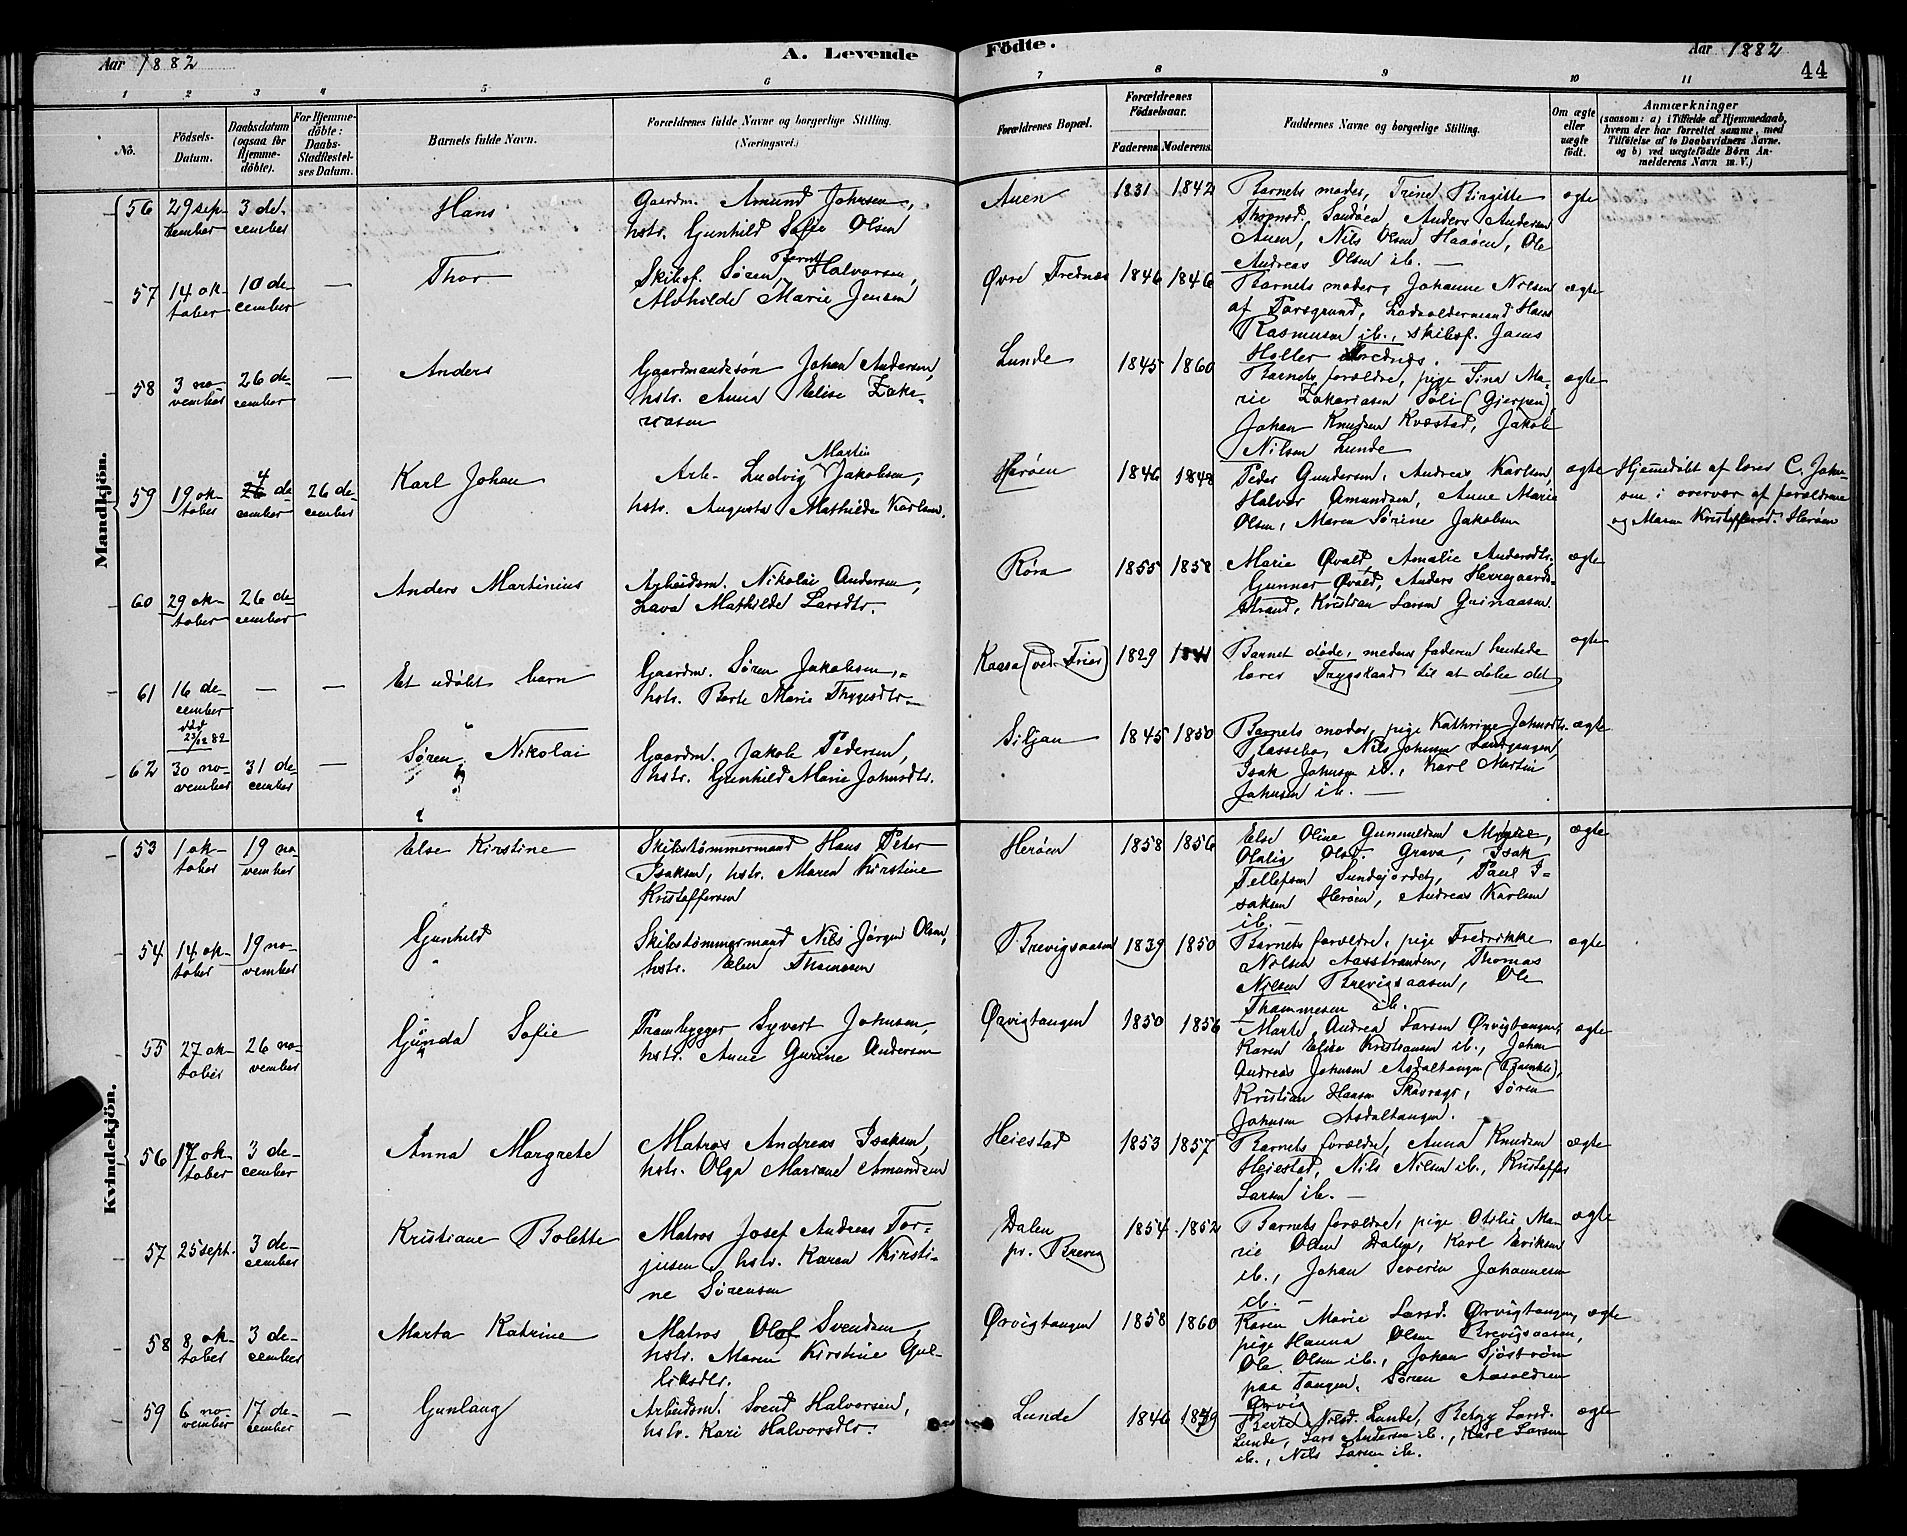 Aar 1882
A. Levende
Födte.
Aar 1882
44
1 2 3 4 5 6 7 8 9 10 11
No.
Födsels-Datum.
Daabsdatum (ogsaa for Hjemme-döbte).
For Hjemme-döbte: Daabs-Stadfæstel-ses Datum.
Barnets fulde Navn.
Forældrenes fulde Navne og borgerlige Stilling. (Næringsvei.)
Forældrenes Bopæl.
Forældrenes Födselsaar.
Faderens Moderens
Faddernes Navne og borgerlige Stilling.
Om ægte eller uægte födt.
Anmærkninger
(saasom: a) i Tilfælde af Hjemmedaab, hvem der har forrettet samme, med Tilföielse af to Daabsvidners Navne, og b) ved uægtefödte Börn Anmelderens Navn m. V.)
Mandkjön.
56 29 september 3 december Hans
Gaardm. Amund Johnsen,
hstr. Gunhild Sofie Olsen
Auen 1831 1842
Barnets moder, Trine Birgitte
Thronsd. Sandöen, Anders Andersen
Auen, Nils Olsen Haaöen, Ole
Andreas Olsen ib. —
ægte
57 14 oktober 10 december — Thor
Skibsf. Søren Bernt Halvorsen,
Alvhilde Marie Jensen
Øvre Frednæs 1846 1846
Barnets moder, Johanne Nilsen
af Porsgrund, Lodsoldermand Hans
Rasmusen ib., skibsf. Jams
Holler Frednæs.
ægte
58 3 november 26 december — Anders
Gaardmandssøn Johan Andersen,
hstr. Anna Elise Zaka-
riasen
Lunde 1845 1860
Barnets forældre, pige Tina Ma-
rie Zakariasen Soli (Gjerpen)
Johan Knudsen Kvestad, Jakob
Nilsen Lunde
ægte
59 19 oktober 4 december 26 december Karl Johan
Arb. Ludvig Martin Jakobsen,
hstr. Augusta Mathilde Karlsen.
Herøen 1846 1848
Peder Gundersen, Andreas Karlsen,
Halvor Amundsen, Anne Marie
Olsen, Maren Sørine Jakobsen
ægte
Hjemdøbt af lærer C. John-
sen i overvær af forældrene
og Maren Kristoffersd. Herøen
60 29 oktober 26 december Anders Martinius
Arbeidsm. Nikolai Andersen,
Lava Mathilde Larsdtr.
Røra 1855 1858
Marie Øvald, Amalie Andersdtr.
Gunnar Øvald, Anders Herregaards-
strand, Kristian Larsen
ægte
61 16 december død 23/12 82 — — Et udøbt barn
Gaardm. Søren Jakobsen,
hstr. Berte Marie Thygesdtr.
Kaasa (ved Frier) 1829 1841
Barnet døde, medens faderen hentede
lærer Trygstand til at døbe det
ægte
62 30 november 31 december — Søren Nikolai
Gaardm. Jakob Pedersen,
hstr. Gunhild Marie Johnsdtr.
Siljan 1845 1850
Barnets moder, pige Kathrine Johnsdtr.
Plassebo, Nils Johnsen Landgangen,
Isak Johnsen ib., Karl Martin
Johnsen ib. —
ægte
Kvindekjön.
53 1 oktober 19 november Else Kirstine
Skibstømmermand Hans Peter
Isaksen, hstr. Maren Kirstine
Kristoffersen
Herøen 1858 1856
Else Oline Gunnuldsen
Olsd. Grava, Isak
Tellefsen Sundsjordet, Paul I-
saksen Herøen, Andreas Karlsen
ib. —
ægte
54 14 oktober 19 november Gunhild
Skibstømmermand Nils Jørgen Olsen,
hstr. Elen Thomasen
Brevigsaasen 1839 1850
Barnets forældre, pige Fredrikke
Nilsen Aasstranden, Thomas
Nilsen Brevigsaasen, Ole
Thommesen ib. —
ægte
55 27 oktober 26 november Gunda Sofie
Prambygger Syvert Johnsen,
hstr. Anne Gurine Andersen
Ørvigtangen 1850 1856
Marte Andrea Larsen Ørvigtangen,
Karen Elise Kristiansen ib., Johan
Andreas Johnsen Asdaltangen (Bamble),
Kristian Hansen Skavrags, Søren
Johnsen Asdaltangen.
ægte
56 17 oktober 3 december Anna Margrete
Matros Andreas Isaksen,
hstr. Olga Mariane Amundsen
Heiestad 1853 1857
Barnets forældre, Anna Knudsen
Heiestad, Nils Nilsen ib., Kristoffer
Larsen ib. —
ægte
57 25 sept. 3 december Kristiane Bolette
Matros Josef Andreas Tor-
jusen, hstr. Karen Kirsti-
ne Sørensen
Dalen
pr. Brevig
1854 1852
Barnets forældre, pige Otilie Ma-
rie Olsen Dalen, Karl Eriksen
ib., Johan Severin Johannesen
ib. —
ægte
58 8 oktober 3 december Marta Katrine
Matros Olaf Svendsen,
hstr. Maren Kirstine Gul-
liksdtr.
Ørvigtangen 1858 1860
Karen Marie Larsd. Ørvigtangen,
pige Hanna Olsen Brevigsaasen,
Ole Olsen ib., Johan Sjöström
paa Tangen, Søren Aasoldsen
Ørvig
ægte
59 6 november 17 december — Gunlaug
Arbeidsm. Svend Halvorsen,
hstr. Kari Halvorsdtr.
Lunde 1846 1849
Berte Nilsd. Lunde, Betzy Larsd.
Lunde, Lars Andersen ib., Karl Larsen
ib., Nils Larsen ib.
ægte